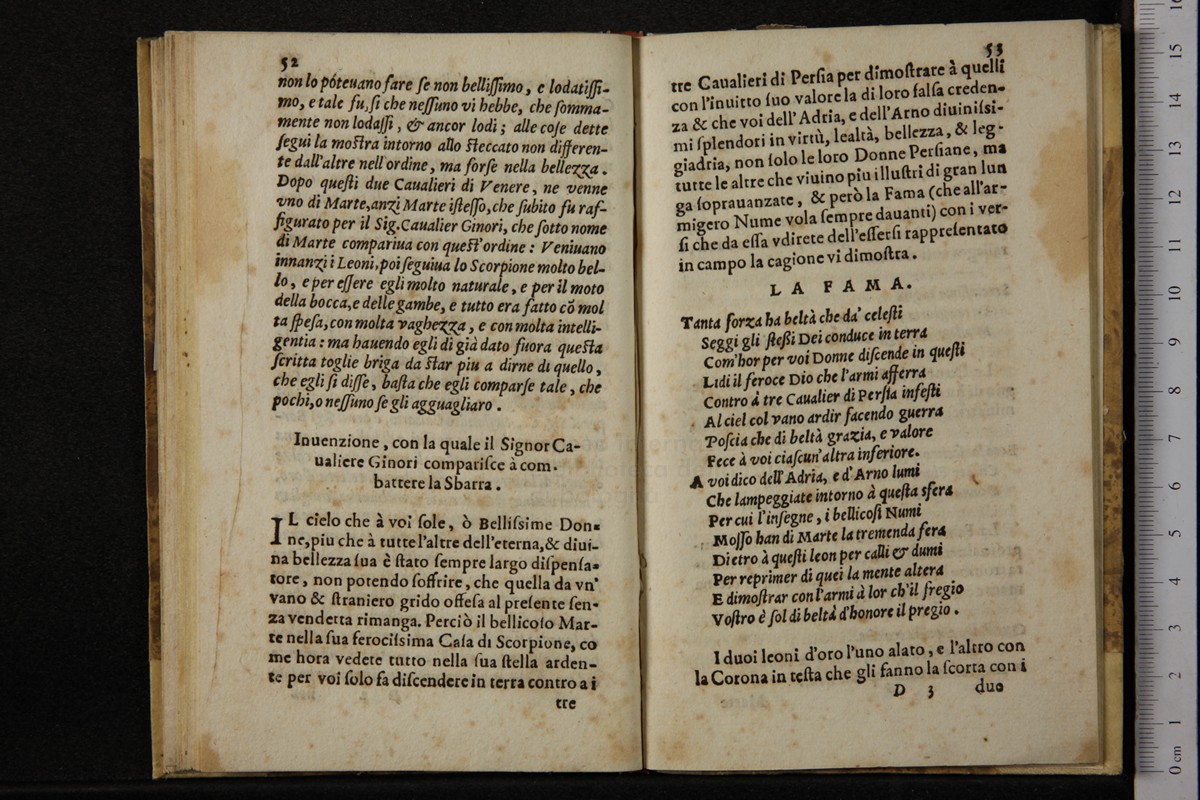 52
non lo póteuano fare ſe non belliſſimo, e lodatiſſi-
mo, e tale fu, ſi che neſſuno vi hebbe, che ſomma-
mente non lodaſſi, & ancor lodi; alle coſe dette
ſeguì la moſtra intorno allo ſteccato non differen-
te dall'altre nell'ordine, ma forſe nella bellezza.
Dopo queſti due Caualieri di Venere, ne venne
vno di Marte, anzi Marte iſteſſo, che ſubito fu raf-
figurato per il Sig. Caualier Ginori, che ſotto nome
di Marte compariua con queſt'ordine: Veniuano
innanzi i Leoni, poi ſeguiua lo Scorpione molto bel-
lo, e per eſſere egli molto naturale, e per il moto
della bocca, e delle gambe, e tutto era fatto cō mol
ta ſpeſa, con molta vaghezza, e con molta intelli-
gentia: ma hauendo egli di già dato fuora queſta
ſcritta toglie briga da ſtar piu a dirne di quello,
che egli ſi diſſe, baſta che egli comparſe tale, che
pochi, o neſſuno ſe gli agguagliaro.
Inuenzione, con la quale il Signor Ca-
ualiere Ginori compariſce à com.
battere la Sbarra.
IL cielo che à voi ſole, ò Belliſsime Don-
ne, piu che à tutte l'altre dell'eterna, & diui-
na bellezza ſua è ſtato ſempre largo diſpenſa-
tore, non potendo ſoffrire, che quella da vn'
vano & ſtraniero grido offeſa al preſente ſen-
za vendetta rimanga. Perciò il bellicoſo Mar-
te nella ſua ferociſsima Caſa di Scorpione, co
me hora vedete tutto nella ſua ſtella arden-
te per voi ſolo fa diſcendere in terra contro a i
tre
53
tre Caualieri di Perſia per dimoſtrare à quelli
con l'inuitto ſuo valore la di loro falſa creden-
za & che voi dell'Adria, e dell'Arno diuiniſsi-
mi ſplendori in virtù, lealtà, bellezza, & leg-
giadria, non ſolo le loro Donne Perſiane, ma
tutte le altre che viuino piu illuſtri di gran lun
ga ſoprauanzate, & però la Fama (che all'ar-
migero Nume vola ſempre dauanti) con i ver-
ſi che da eſſa vdirete dell'eſſerſi rappreſentato
in campo la cagione vi dimoſtra.
LA FAMA.
Tanta forza ha beltà che da' celeſti
Seggi gli ſteßi Dei conduce in terra
Com'hor per voi Donne diſcende in queſti
Lidi il feroce Dio che l'armi afferra
Contro à tre Caualier di Perſia infeſti
Al ciel col vano ardir facendo guerra
Poſcia che di beltà grazia, e valore
Fece à voi ciaſcun'altra inferiore.
A voi dico dell'Adria, e d'Arno lumi
Che lampeggiate intorno à queſta sfera
Per cui l'inſegne, i bellicoſi Numi
Moſſo han di Marte la tremenda fera
Dietro à queſti leon per calli & dumi
Per reprimer di quei la mente altera
E dimoſtrar con l'armi à lor ch'il fregio
Voſtro è ſol di beltà d'honore il pregio.
I duoi leoni d'oro l'uno alato, e l'altro con
la Corona in teſta che gli fanno la ſcorta con i
D 3 duo
0 cm 1 2 3 4 5 6 7 8 9 10 11 12 13 14 15 16